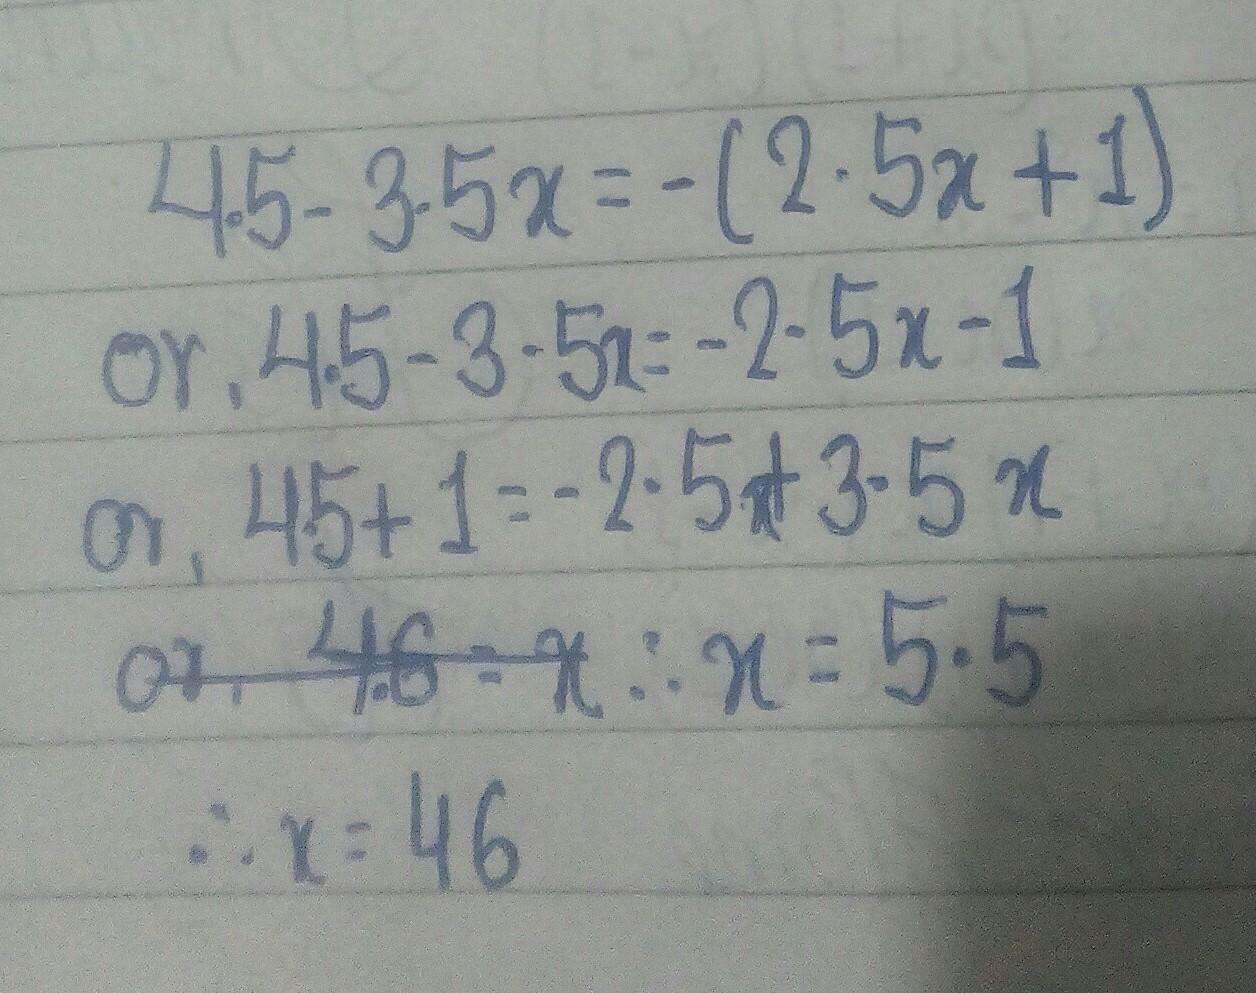 4.5 - 3.5x = -(2.5x + 1)
or, 4.5 - 3.5x = -2.5x - 1
or, 4.5 + 1 = -2.5x + 3.5x
or, 4.6 = x ∴ x = 5.5
∴ x = 46